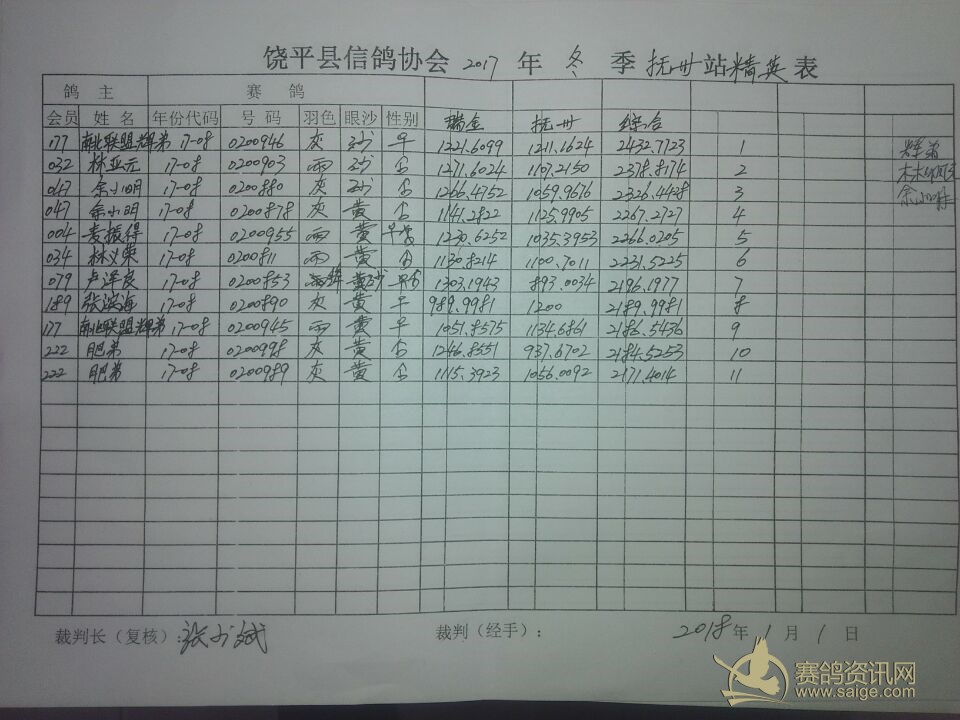 饶平县信鸽协会 2017 年 冬 季 抚州站精英表
鸽主 赛鸽
会员 姓名 年份代码 号码 羽色 眼沙 性别 瑞金 抚州 综合
177 南北联盟辉弟 17-08 0200946 灰 沙 1221.6099 1211.1624 2432.7723 1
032 林亚元 17-08 0200903 雨 沙 1271.6024 1107.2150 2378.8174 2
047 余小明 17-08 0200880 灰 沙 1266.4752 1059.9676 2326.4428 3 余小明
047 余小明 17-08 0200878 灰 黄 1141.2822 1125.9905 2267.2727 4
004 麦振得 17-08 0200955 雨 黄 1230.6252 1035.3953 2266.0205 5
034 林义荣 17-08 0200811 雨 黄 1130.8214 1100.7011 2231.5225 6
079 卢泽良 17-08 0200853 黄沙 1303.1943 893.0034 2196.1977 7
189 张滨海 17-08 0200890 灰 黄 989.9981 1200 2189.9981 8
177 南北联盟辉弟 17-08 0200945 雨 黄 1051.8575 1134.6861 2186.5436 9
222 肥弟 17-08 0200998 灰 黄 1246.8551 937.6702 2184.5253 10
222 肥弟 17-08 0200989 灰 黄 1115.3923 1056.0092 2171.4014 11
裁判长（复核）： 裁判（经手）： 2018 年 1 月 1 日
赛鸽资讯网
www.saige.com